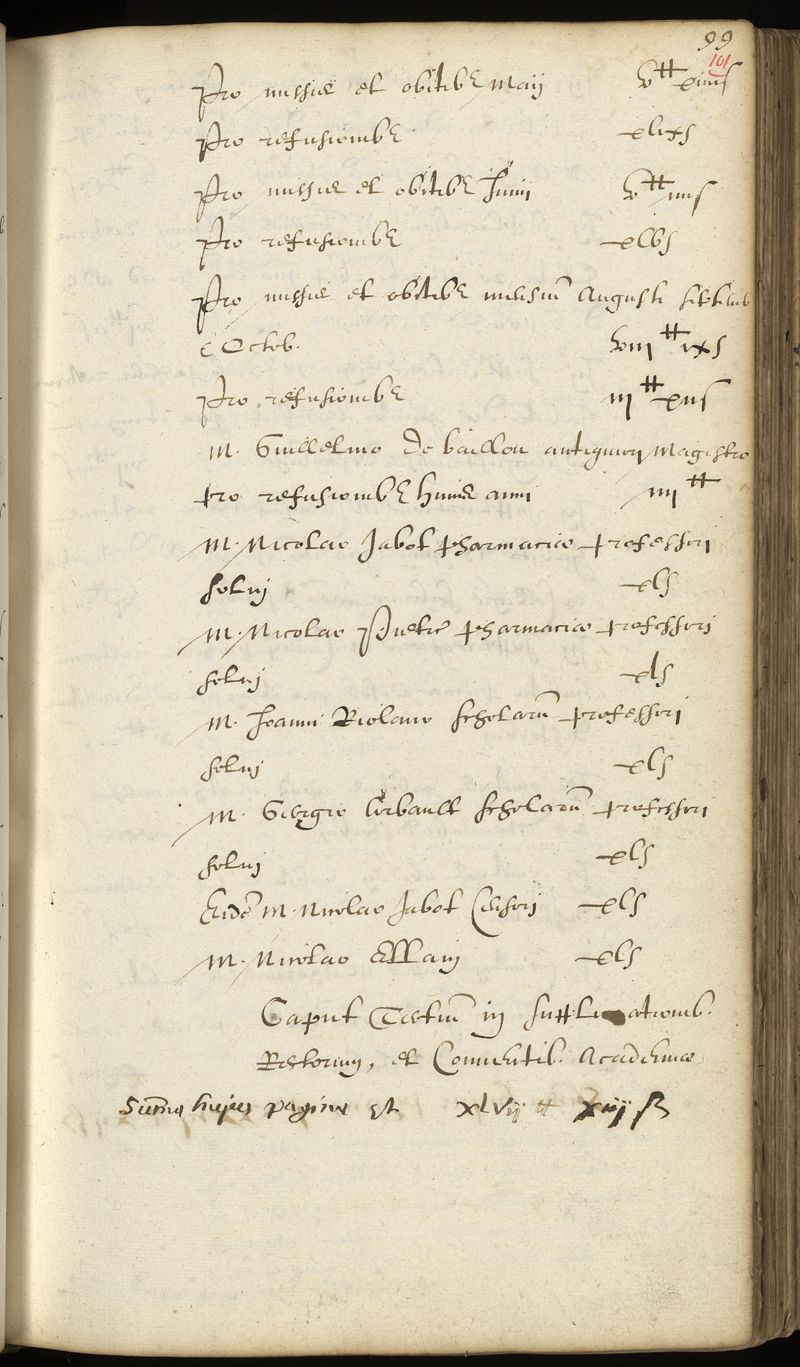 99
101
Pro missis et obitib Maij v ℔ xiiii s
Pro refusionib xlix s
Pro missis et obitib Junij v ℔ iiii s
Pro refusionib xlv s
Pro missis et obitib mensiū Augusti septemb
& Octob. viii ℔ ix s
Pro refusionib iii ℔ xii s
M. Guillelmo De baillou antiquiori Magistro
pro refusionib huius anni iiii ℔
M. Nicolao Jabot pharmaciæ professori
solvj xl s
M. Nicolao Pietre pharmaciæ professori
solvj xl s
M. Joanni Riolano scholarū professori
solvj xl s
M. Georgio Cerbault scholarū professori
solvj xl s
Eidē M. Nicolao Jabot Censori xl s
M. Nicolao Ellain xl s
Caput Tertiū in supplicationib.
Rectoriis, et Conventib. Academiæ
Sum̄a hujus paginæ est xlvij ℔ xiij ß